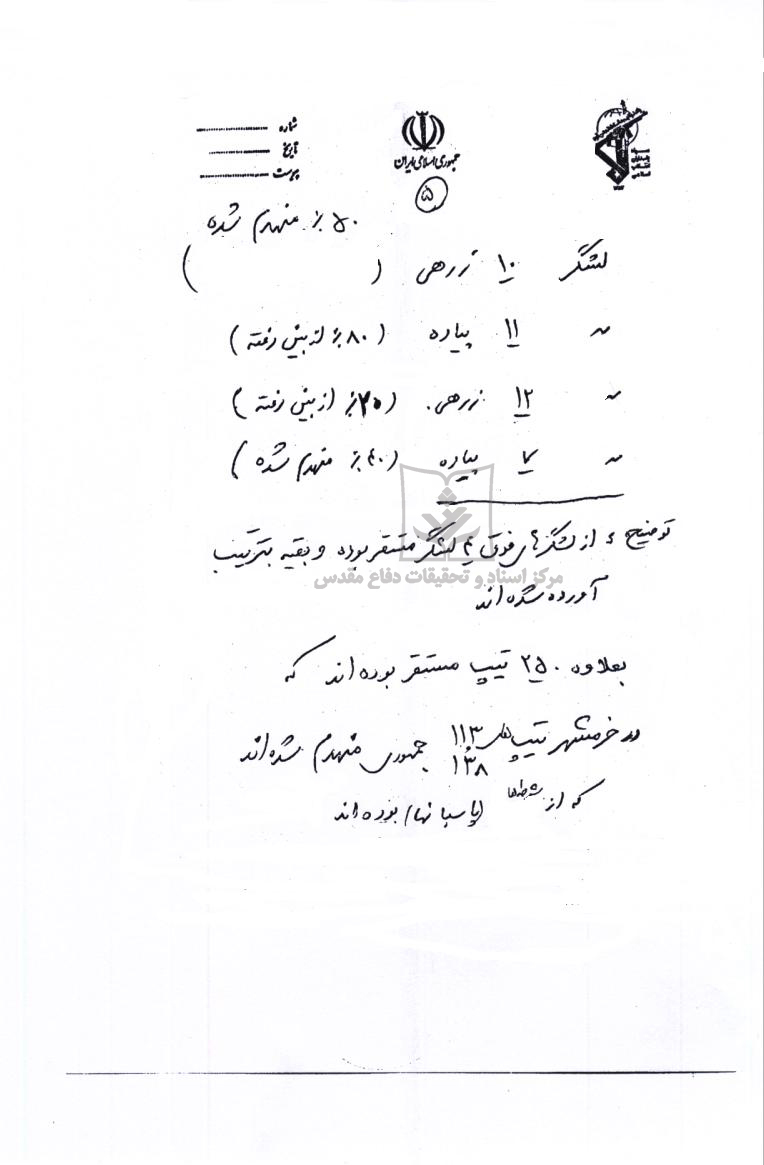 شماره
تاریخ
پیوست
جمهوری اسلامی ایران
۵
۵۰٪ منهدم شده
لشگر ۱۰ زرهی ( )
〃 ۱۱ پیاده (۸۰٪ از بین رفته)
〃 ۱۲ زرهی (۳۰٪ از بین رفته)
〃 ۷ پیاده (۴۰٪ منهدم شده)
توضیح: از لشگرهای فوق لشگر مستقر بوده و بقیه بترتیب
مرکز اسناد و تحقیقات دفاع مقدس
آورده شده اند
بعلاوه ۲۵۰ تیپ مستقر بوده اند که
در خرمشهر تیپ های ۱۱۳ و ۱۳۸ جمهوری منهدم شده اند
که از شرطه ها (پاسبانها) بوده اند